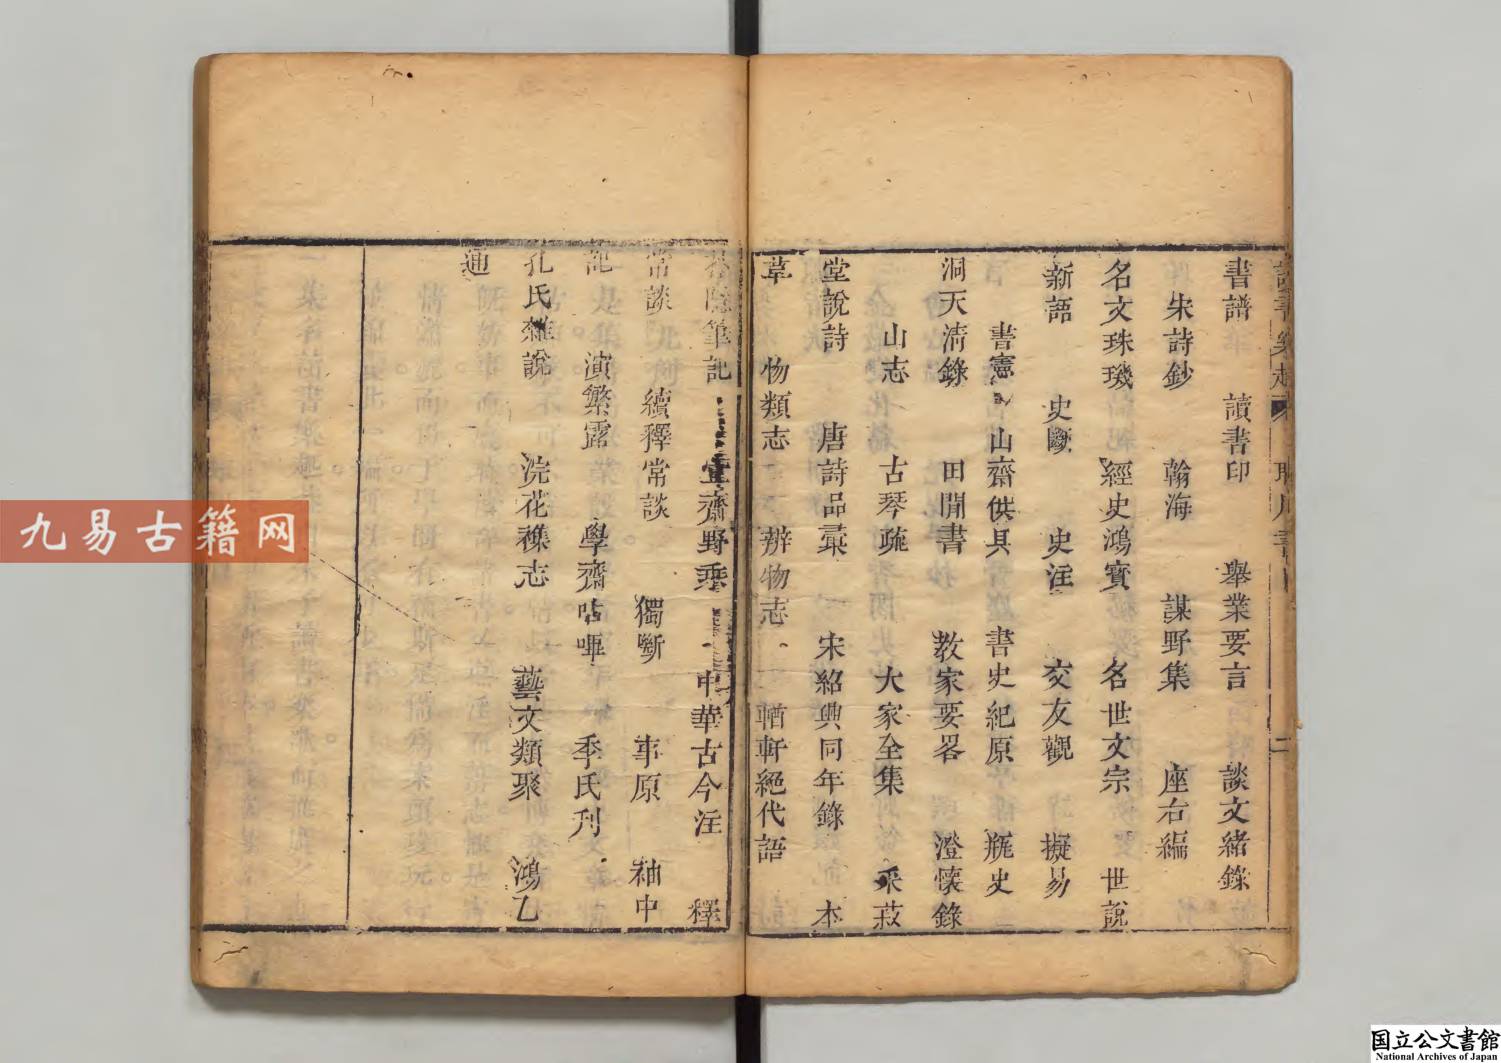 書譜　讀書印　舉業要言　談文緒錄
朱詩鈔　翰海　謀野集　座右編
名文珠璣　經史鴻寶　名世文宗　世說
新語　史斷　史注　交友觀　擬易
書憲　山齋供具　書史紀原　瓶史
洞天清錄　田間書　教家要畧　澄懷錄
山志　古琴疏　大家全集　采菽
堂說詩　唐詩品彙　宋紹興同年錄　本
草　物類志　辨物志　輶軒絕代語
筆記　齋野乘　中華古今注　釋
常談　續釋常談　獨斷　事原　袖中
記　演繁露　學齋呫嗶　季氏刊
孔氏雜說　浣花雜志　藝文類聚　鴻乙
通
九易古籍网
国立公文書館
National Archives of Japan